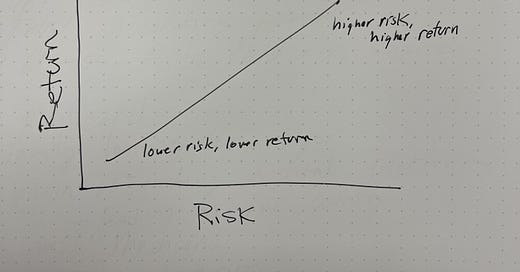 higher risk,
higher return
Return
lower risk, lower return
Risk